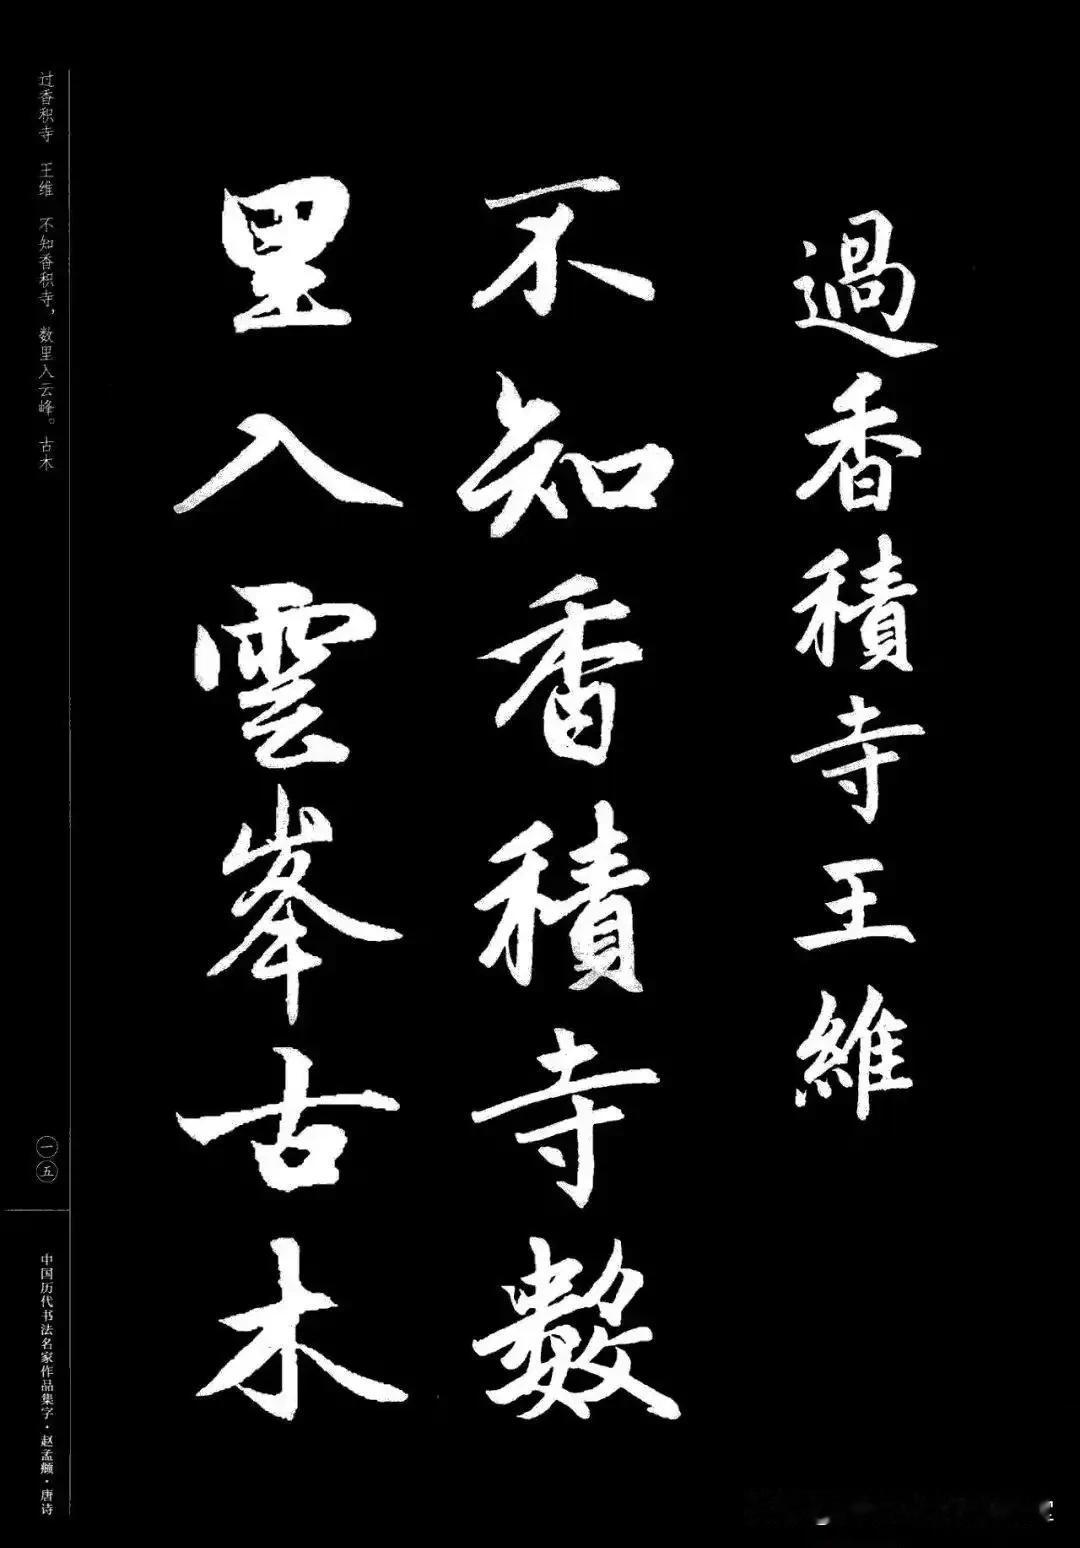 過香積寺王維
不知香積寺數
里入雲峯古木
过香积寺 王维 不知香积寺，数里入云峰。古木
一五
中国历代书法名家作品集字·赵孟頫·唐诗